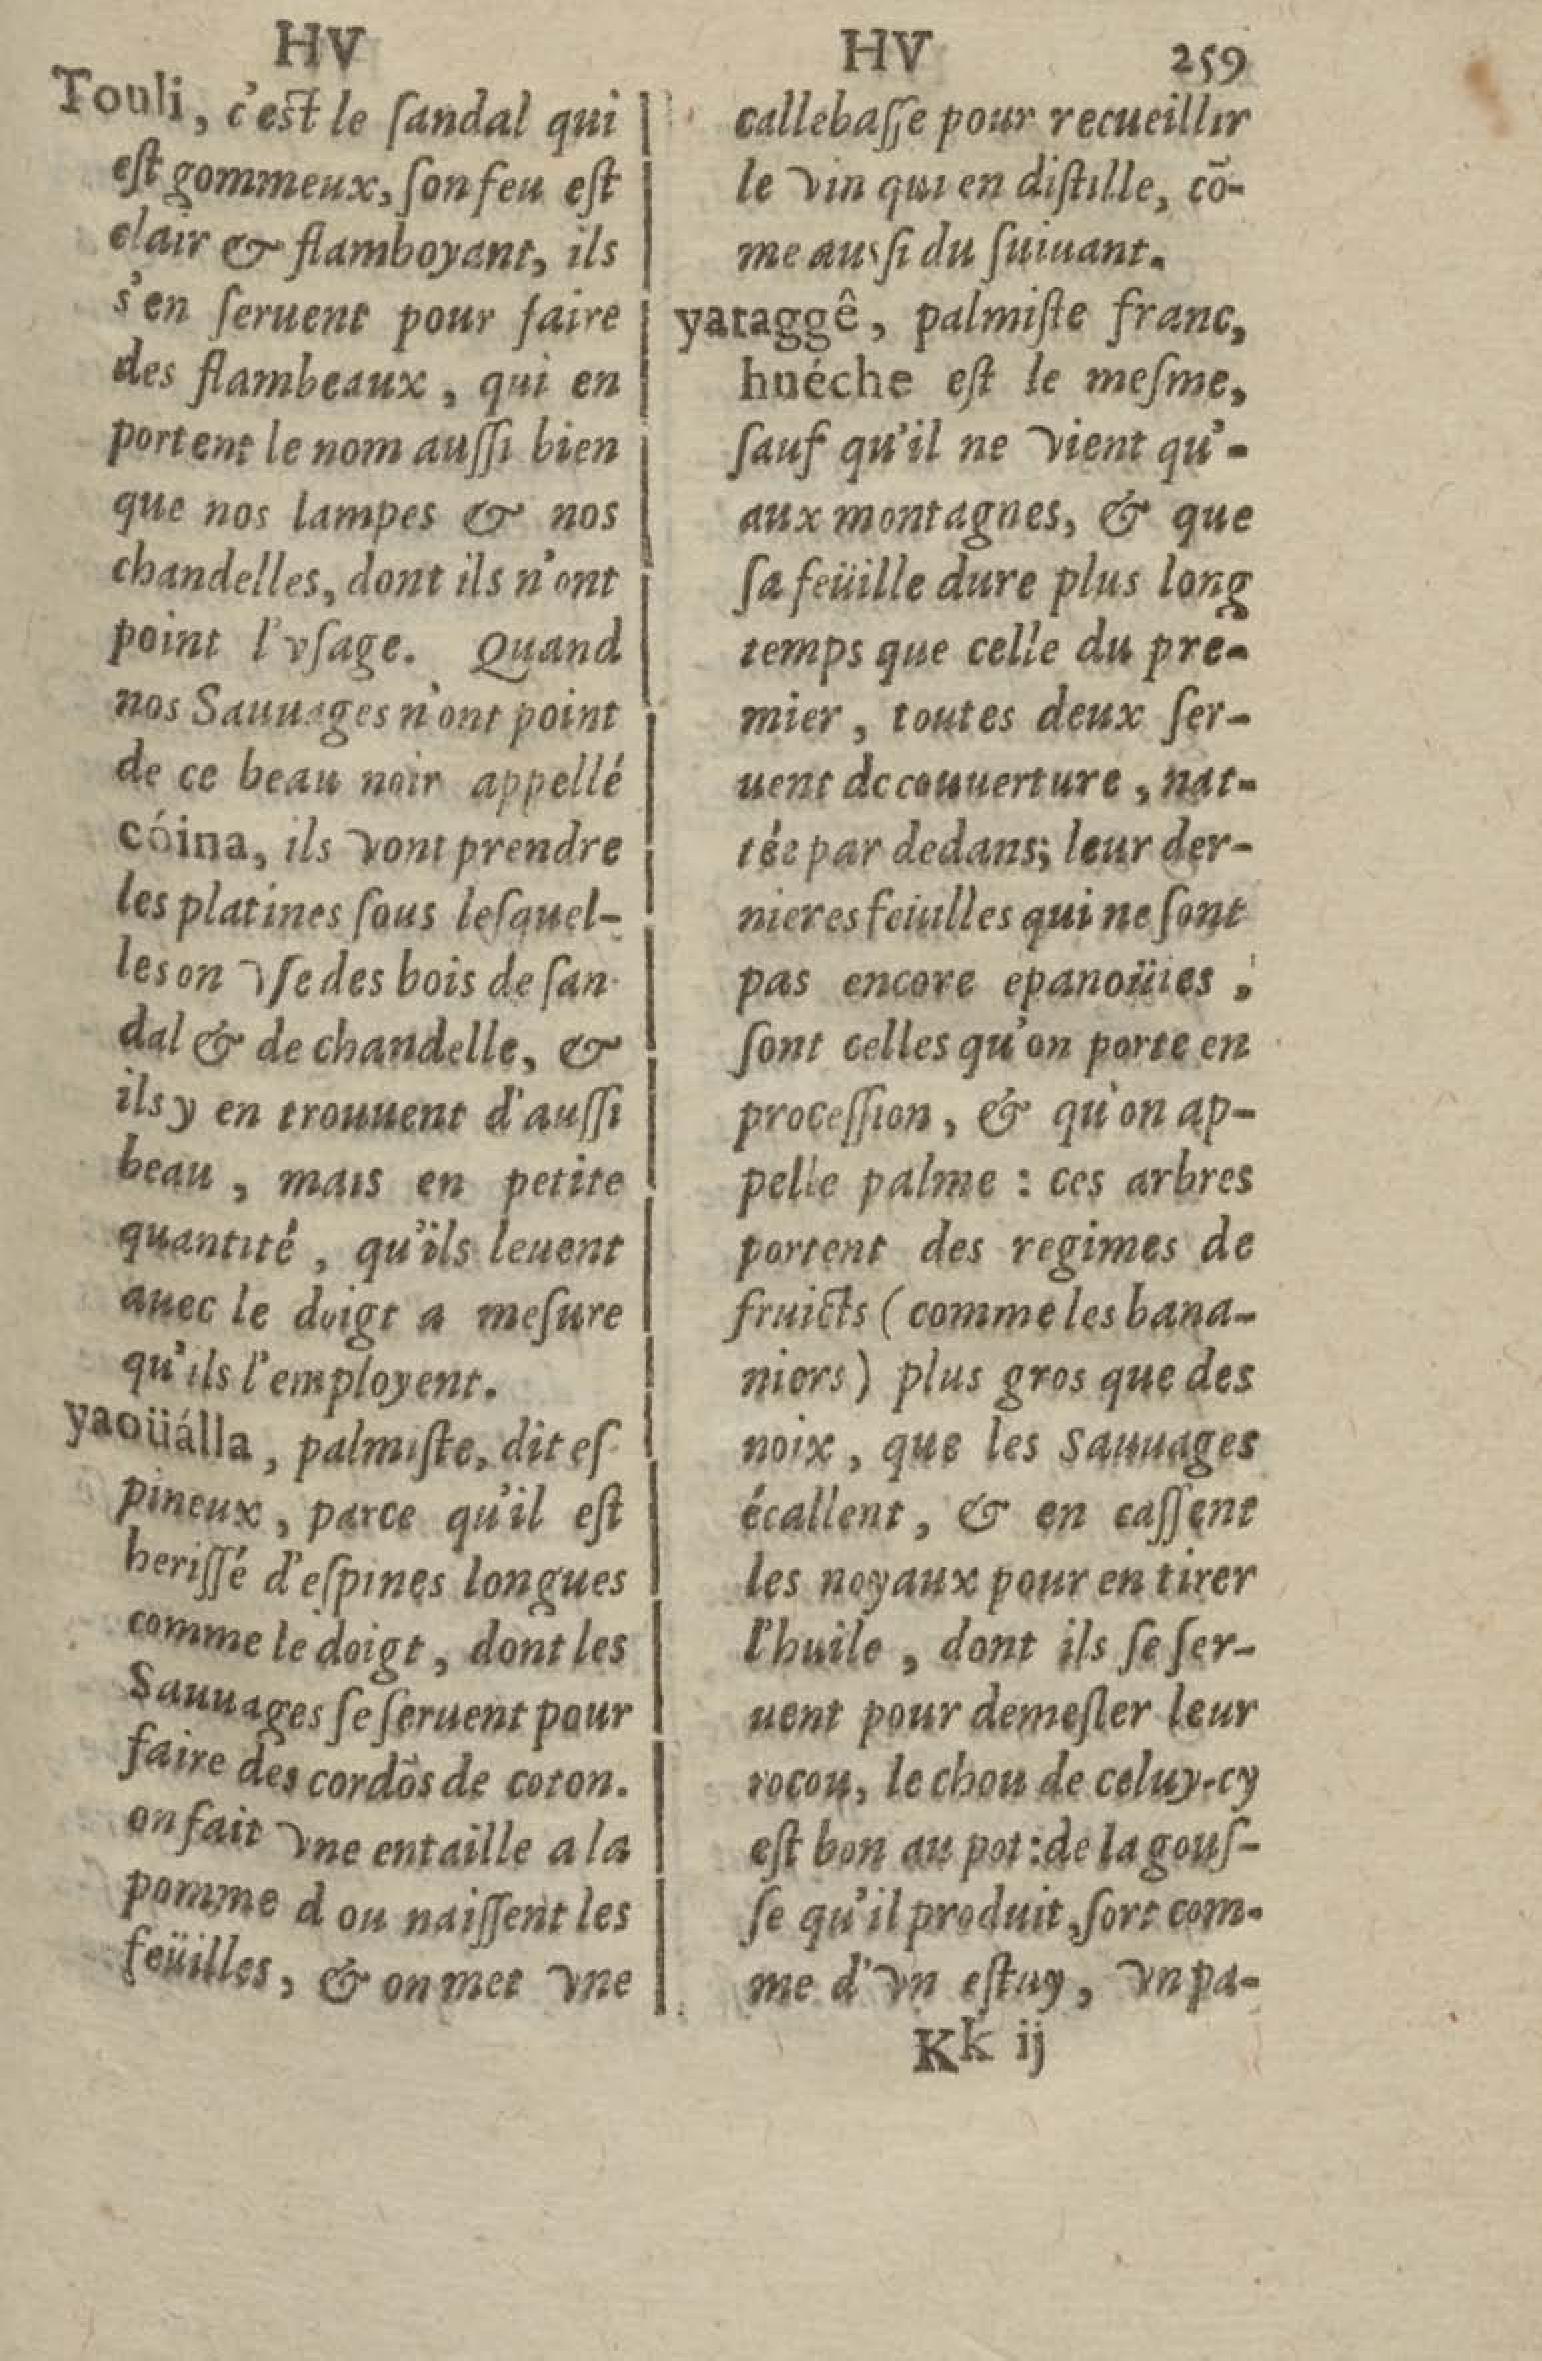 HV
Touli, c'est le ſandal qui
eſt gommeux, ſon feu eſt
clair & flamboyant, ils
s'en ſeruent pour faire
des flambeaux, qui en
portent le nom auſſi bien
que nos lampes & nos
chandelles, dont ils n'ont
point l'vſage. Quand
nos Sauuages n'ont point
de ce beau noir appellé
cóina, ils vont prendre
les platines ſous leſquel-
les on vſe des bois de ſan-
dal & de chandelle, &
ils y en trouuent d'auſſi
beau, mais en petite
quantité, qu'ils leuent
auec le doigt a meſure
qu'ils l'employent.
yaoüálla, palmiſte, dit eſ-
pineux, parce qu'il eſt
heriſſé d'eſpines longues
comme le doigt, dont les
Sauuages ſe ſeruent pour
faire des cordõs de coton.
on fait vne entaille a la
pomme d ou naiſſent les
feüilles, & on met vne
HV 259
callebaſſe pour recueillir
le vin qui en diſtille, cõ-
me auſſi du ſuiuant.
yataggê, palmiſte franc,
huéche eſt le meſme,
ſauf qu'il ne vient qu'-
aux montagnes, & que
ſa feüille dure plus long
temps que celle du pre-
mier, toutes deux ſer-
uent de couuerture, nat-
tée par dedans; leur der-
nieres feiulles qui ne ſont
pas encore epanoüies,
ſont celles qu'on porte en
proceſſion, & qu'on ap-
pelle palme : ces arbres
portent des regimes de
fruicts (comme les bana-
niers) plus gros que des
noix, que les Sauuages
écallent, & en caſſent
les noyaux pour en tirer
l'huile, dont ils ſe ſer-
uent pour demeſler leur
rocou, le chou de celuy-cy
eſt bon au pot : de la gouſ-
ſe qu'il produit, ſort com-
me d'vn eſtuy, vn pa-
Kk ij